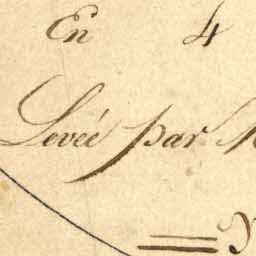 En 4
Levée par